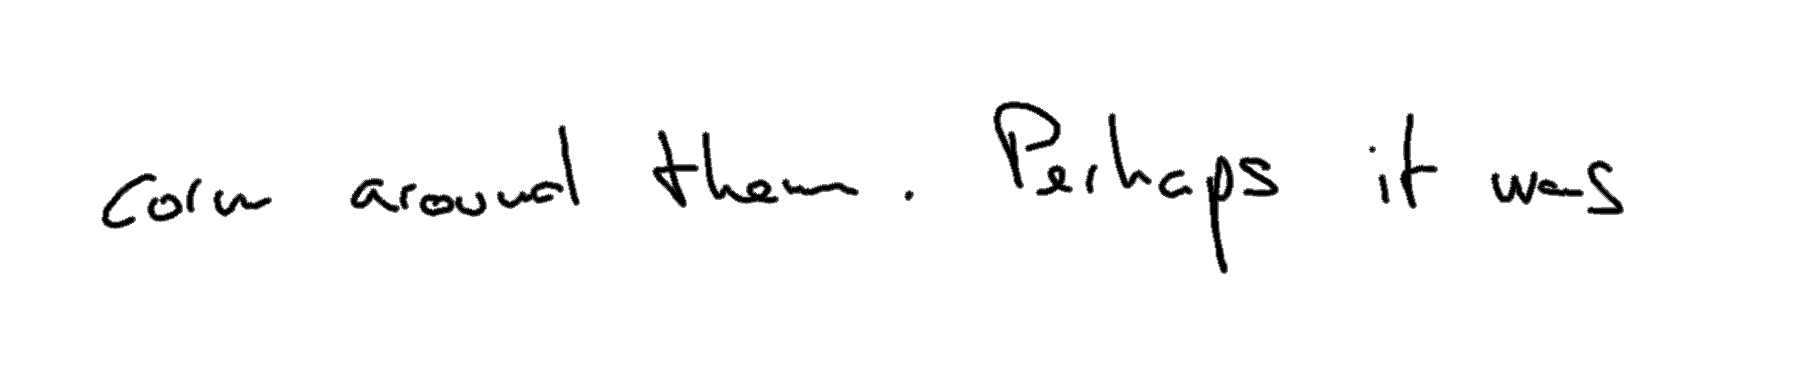 corn around them. Perhaps it was